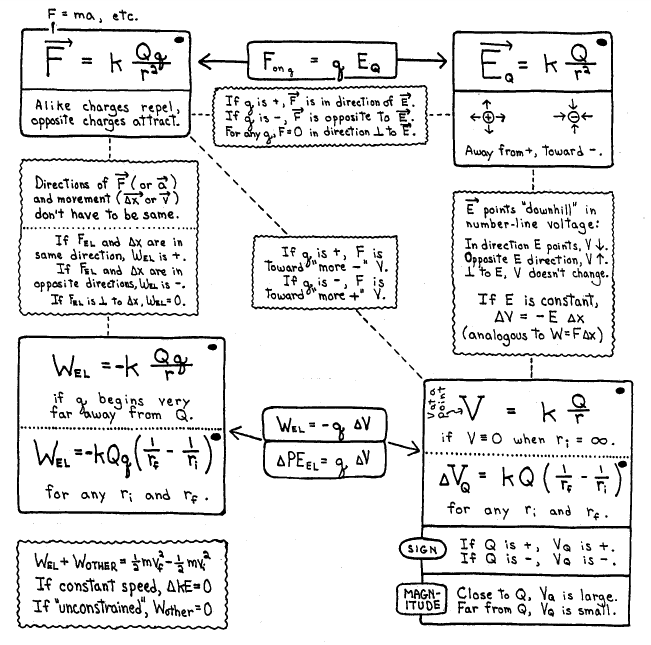 F = ma, etc.
F⃗ = k Qq/r²
Alike charges repel,
opposite charges attract.
F on q = q E_Q
E⃗_Q = k Q/r²
Away from +, toward −.
If q is +, F⃗ is in direction of E⃗.
If q is −, F⃗ is opposite to E⃗.
For any q, F=0 in direction ⊥ to E⃗.
Directions of F⃗ (or a⃗)
and movement (Δx⃗ or v⃗)
don't have to be same.
If F_EL and Δx are in
same direction, W_EL is +.
If F_EL and Δx are in
opposite directions, W_EL is −.
If F_EL is ⊥ to Δx, W_EL = 0.
If q is +, F is
toward "more −" V.
If q is −, F is
toward "more +" V.
E⃗ points "downhill" in
number-line voltage:
In direction E points, V ↓.
Opposite E direction, V ↑.
⊥ to E, V doesn't change.
If E is constant,
ΔV = −E Δx
(analogous to W=FΔx)
W_EL = −k Qq/r
if q begins very
far away from Q.
W_EL = −kQq (1/r_f − 1/r_i)
for any r_i and r_f.
W_EL = −q ΔV
ΔPE_EL = q ΔV
V at a point
V = k Q/r
if V ≡ 0 when r_i = ∞.
ΔV_Q = kQ (1/r_f − 1/r_i)
for any r_i and r_f.
SIGN
If Q is +, V_Q is +.
If Q is −, V_Q is −.
MAGN-
ITUDE
Close to Q, V_Q is large.
Far from Q, V_Q is small.
W_EL + W_OTHER = ½mv_f² − ½mv_i²
If constant speed, ΔkE = 0
If "unconstrained", W_other = 0